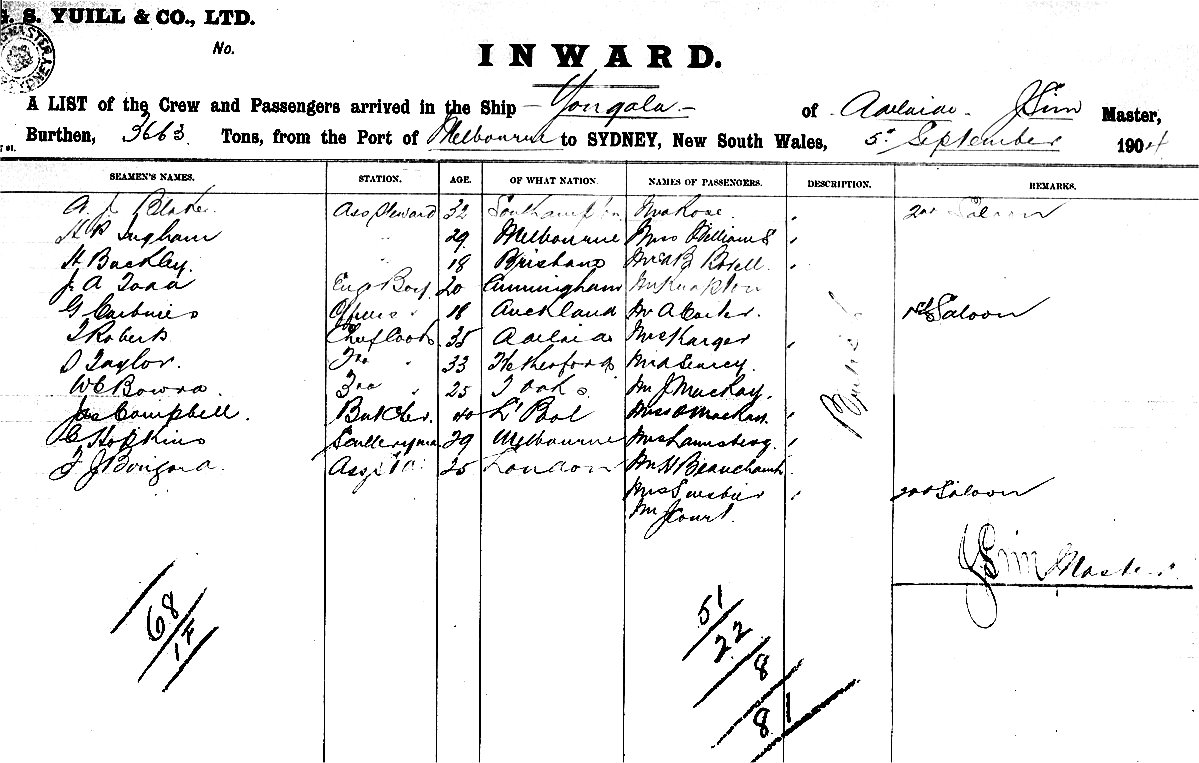 G. S. YUILL & CO., LTD.
No.
INWARD.
A LIST of the Crew and Passengers arrived in the Ship - Yongala - of Adelaide J Sim Master,
Burthen, 3663 Tons, from the Port of Melbourne to SYDNEY, New South Wales, 5th September 1904
SEAMEN'S NAMES. STATION. AGE. OF WHAT NATION. NAMES OF PASSENGERS. DESCRIPTION. REMARKS.
A J Blake Ass Steward 32 Southampton Mrs Rose 2nd Saloon
Ingham " 29 Melbourne Miss Williams
H Buckley " 18 Brisbane
J A Todd 20 Cunningham
G 18 Auckland Mr A Carter 1st Saloon
T Roberts Chief Cook 35 Adelaide Mrs Karger
D Taylor 2nd " 33
W E Bowra 3rd " 25 Mr J MacKay
Jas Campbell Butcher 40 L'Pool Miss
C Hopkins Sculleryman 29 Melbourne
F J 25 London Mr H Beauchamp
Mrs 2nd Saloon
Mr J Court
British
J Sim Master
68
14
51
22
8
81